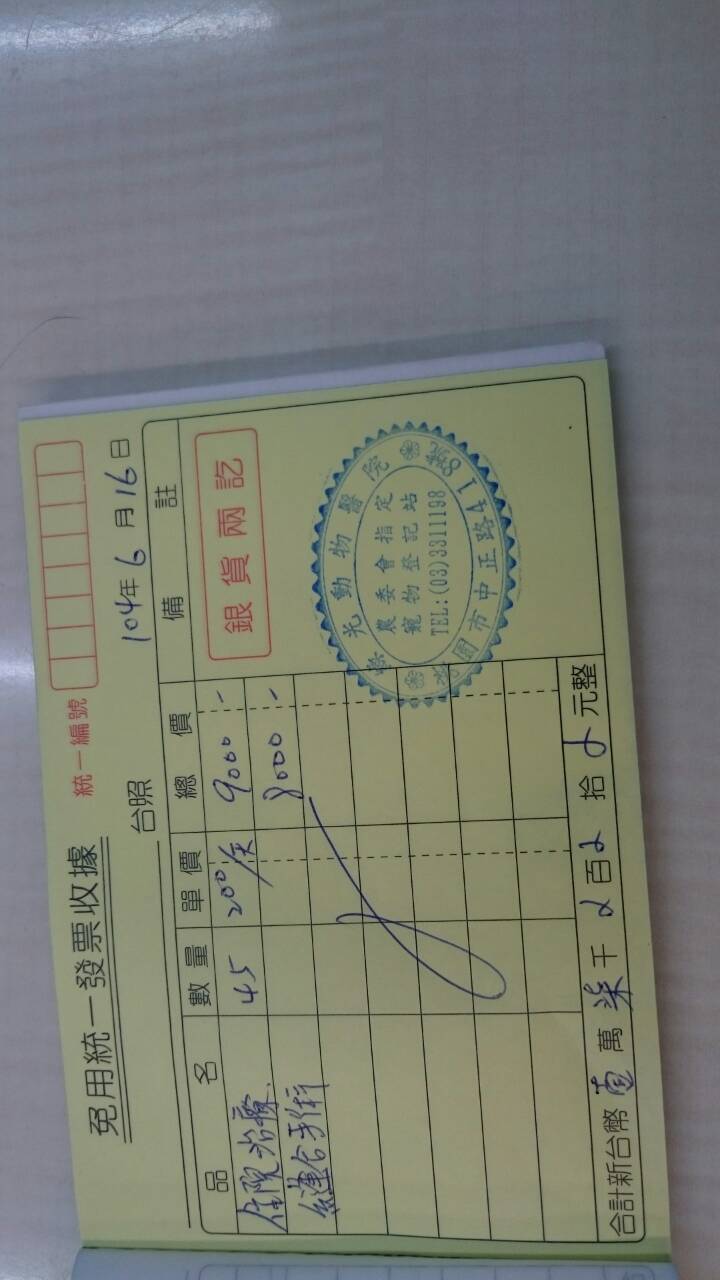 免用統一發票收據
統一編號
台照
104年6月16日
品名 數量 單價 總價 備註
住院治療 45 200/天 9000-
縫合手術 8000-
銀貨兩訖
榮光動物醫院
農委會指定
寵物登記站
TEL:(03)3311198
桃園市中正路418號
合計新台幣壹萬柒千百拾元整